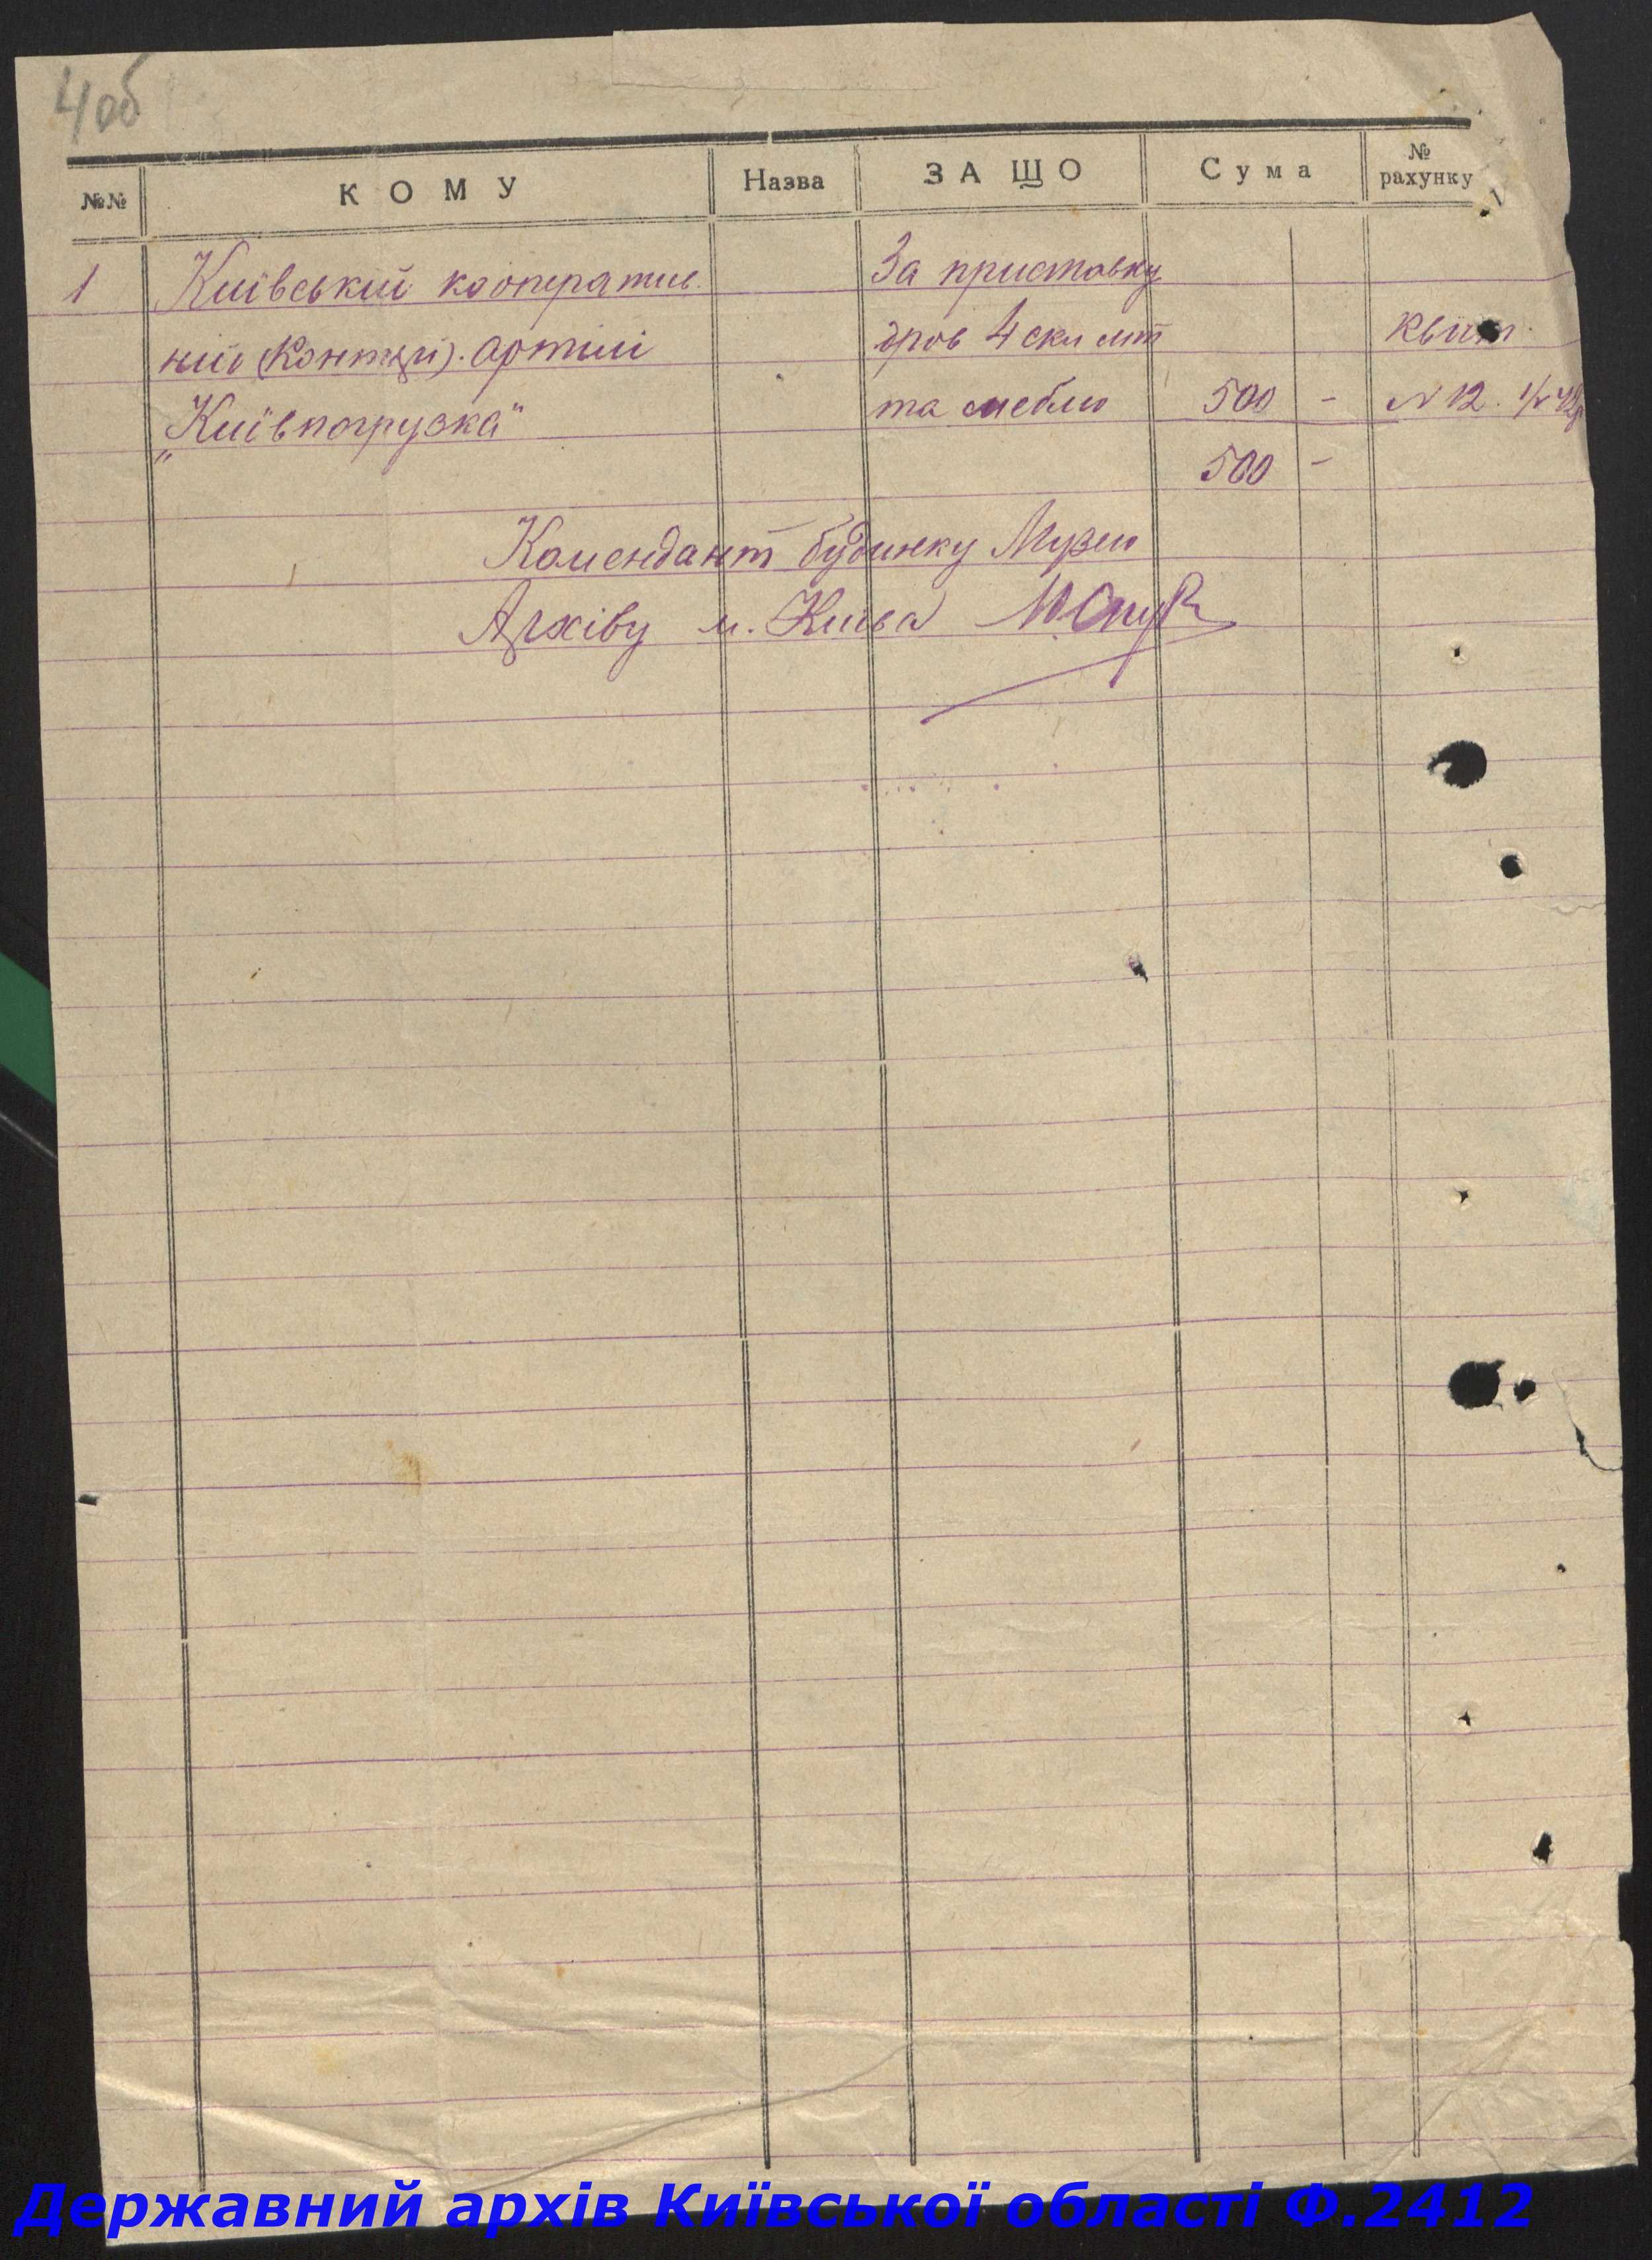 4об
№№ КОМУ Назва ЗА ЩО Сума № рахунку
1 Київський кооператив. За приставку
ній артілі дров 4 скл мт Квит.
„Київпогрузка" та меблю 500 - N 12.
500 -
Комендант будинку Музею
Архіву м. Києва
Державний архів Київської області Ф.2412